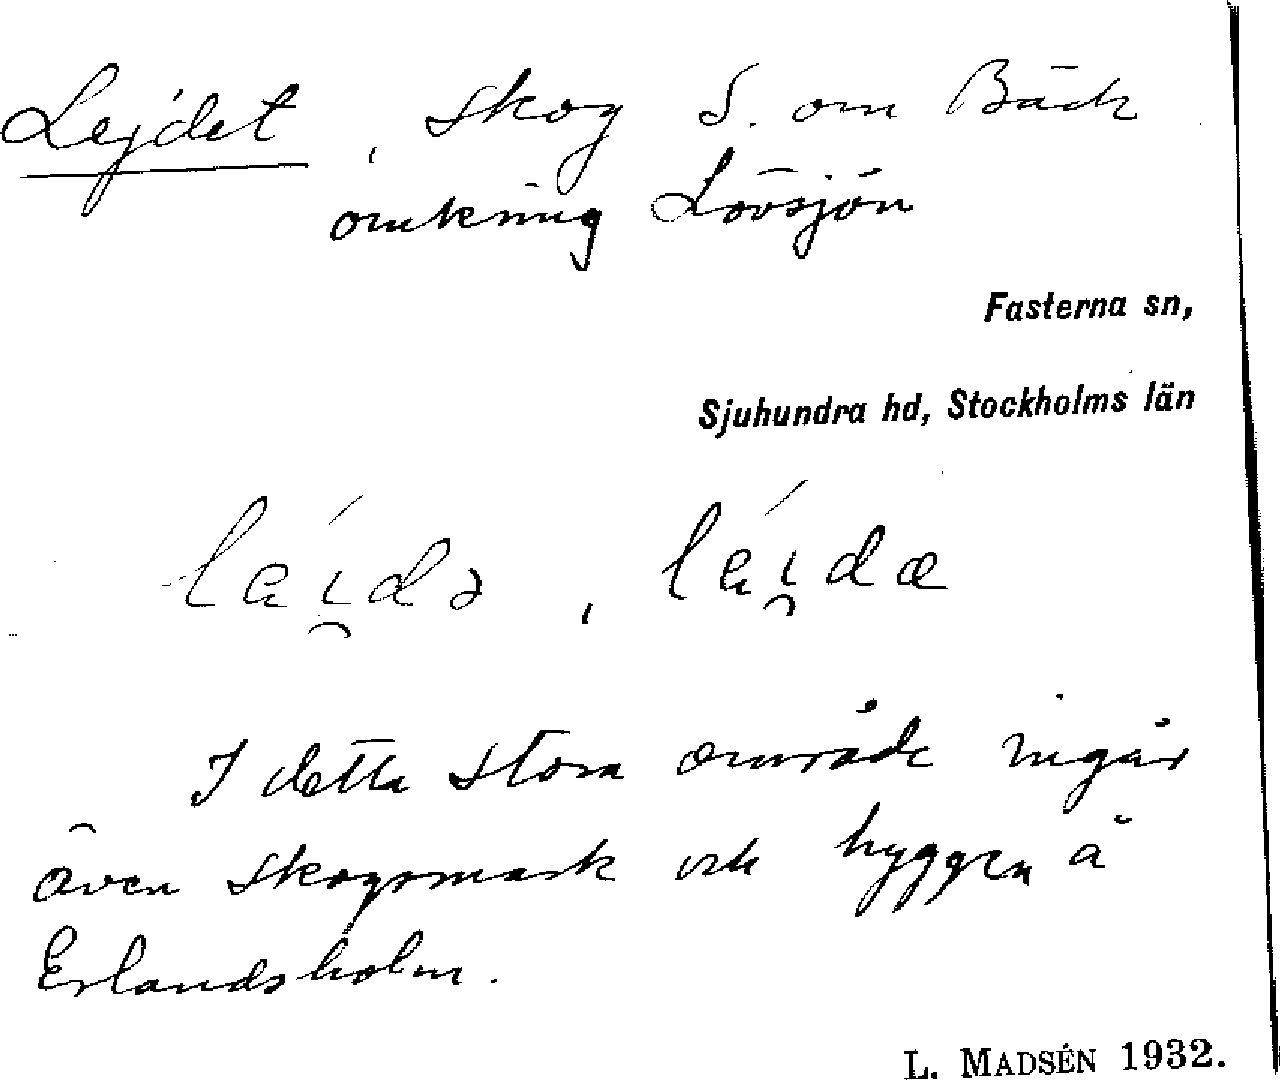 Lejdet, skog S. om Bäck
omkring Lövsjön
Fasterna sn,
Sjuhundra hd, Stockholms län
I detta stora område ingår
även skogsmark och hyggen å
Erlandsholm.
L. MADSÉN 1932.